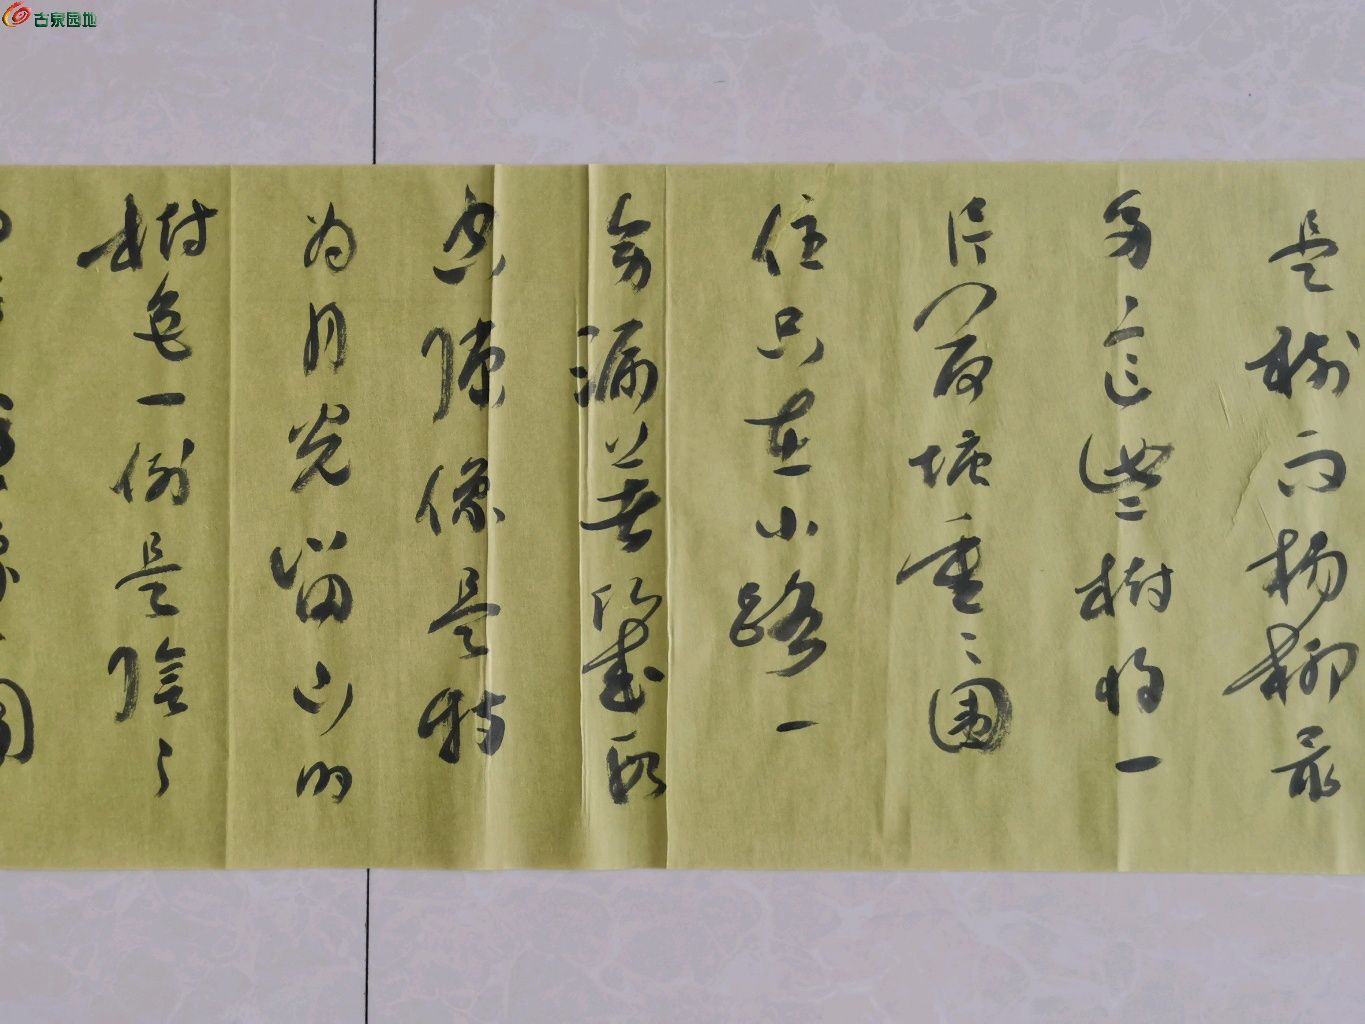 古泉园地
是樹而杨柳最
多这些树将一
片荷塘重々围
住只在小路一
旁漏著幾段
空隙像是特
为月光留下的
树色一例是陰々